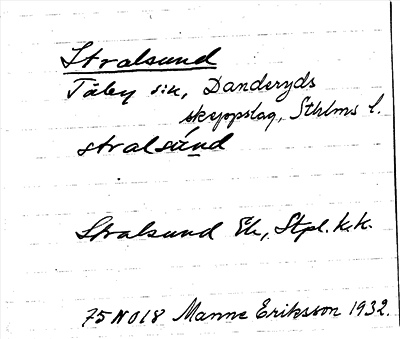 Stralsund
Täby sn, Danderyds
skeppslag, Sthlms l.
stralsúnd
Stralsund Ek, Stpl. k.k.
75 NO18 Manne Eriksson 1932.